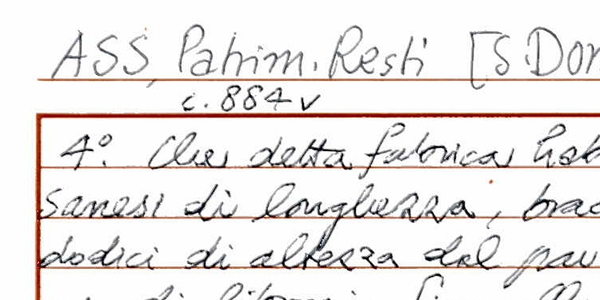 ASS, Patrim. Resti [S. Don
c. 884 v
4°. Che detta fabrica hab
sanesi di longhezza, brac
dodici di altezza dal pav
di